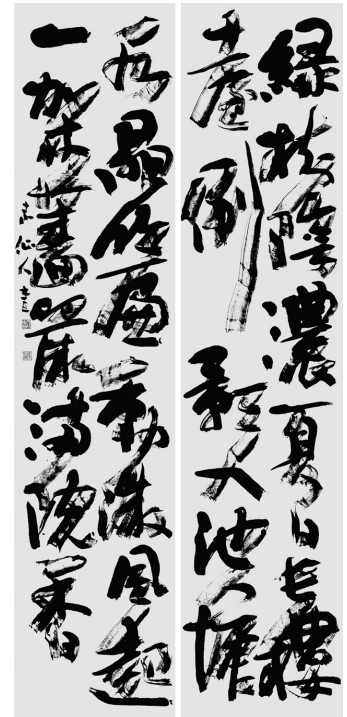 緑樹陰濃夏日長樓
臺倒影入池塘
水晶簾動微風起
一架薔薇滿院香